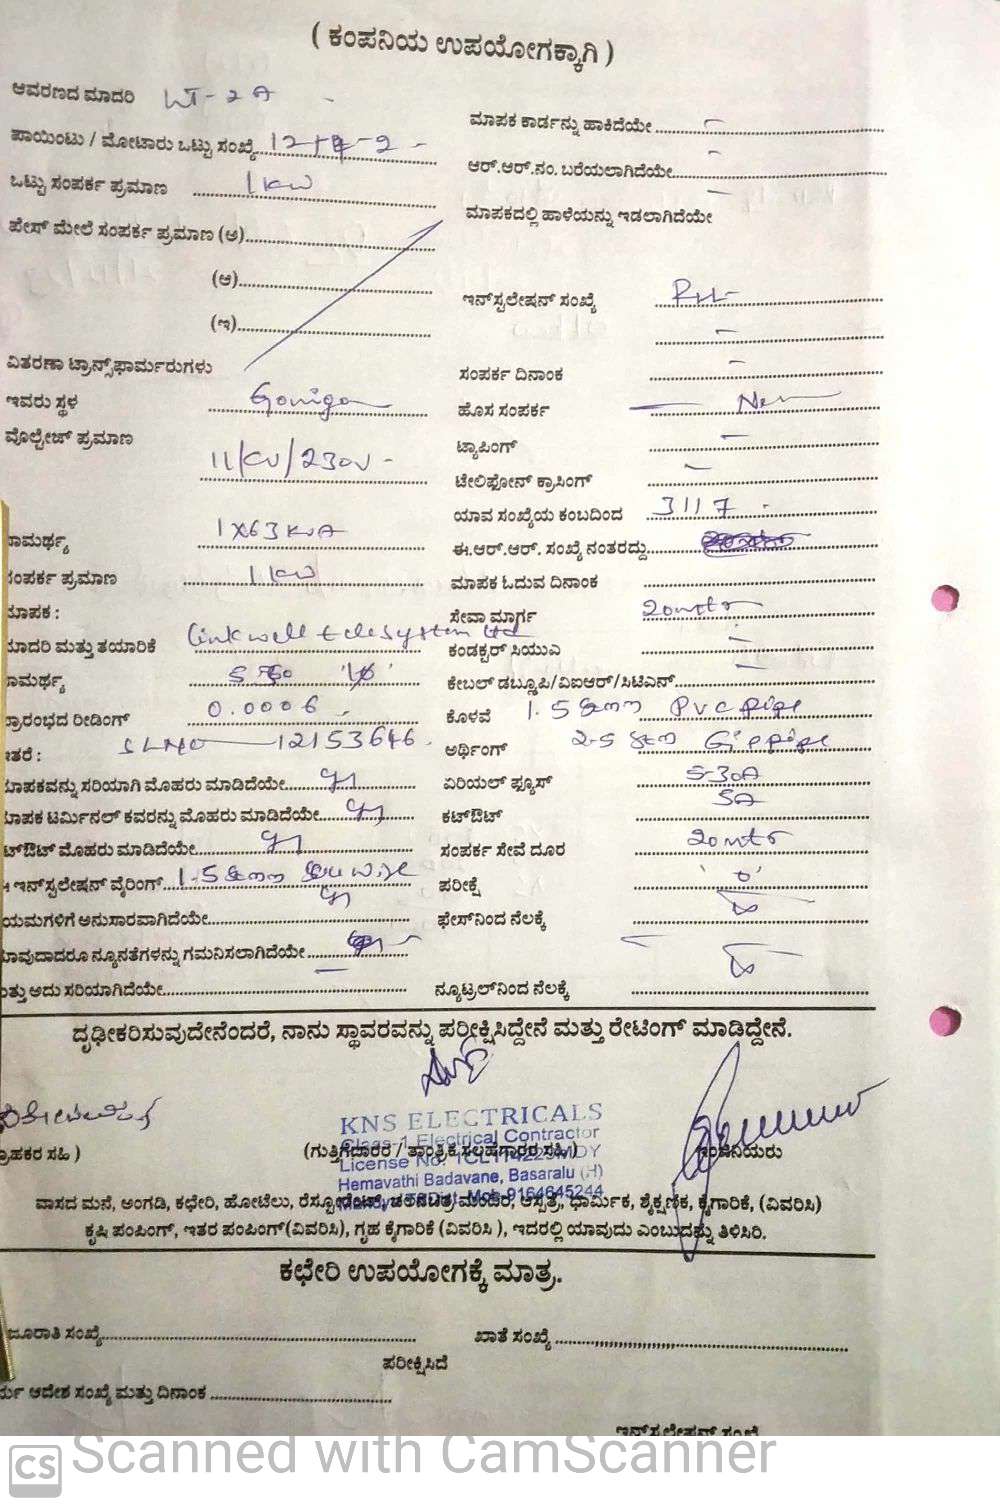 ( ಕಂಪನಿಯ ಉಪಯೋಗಕ್ಕಾಗಿ )
ಆವರಣದ ಮಾದರಿ LT-2A
ಪಾಯಿಂಟು / ಮೋಟಾರು ಒಟ್ಟು ಸಂಖ್ಯೆ
ಒಟ್ಟು ಸಂಪರ್ಕ ಪ್ರಮಾಣ 1 KW
ಪೇಸ್ ಮೇಲೆ ಸಂಪರ್ಕ ಪ್ರಮಾಣ (ಅ)
(ಆ)
(ಇ)
ವಿತರಣಾ ಟ್ರಾನ್ಸ್‌ಫಾರ್ಮರುಗಳು
ಇವರು ಸ್ಥಳ
ವೊಲ್ಟೇಜ್ ಪ್ರಮಾಣ
11/KV/230V -
ಸಾಮರ್ಥ್ಯ 1X63 KVA
ಸಂಪರ್ಕ ಪ್ರಮಾಣ 1 KW
ಮಾಪಕ :
ಮಾದರಿ ಮತ್ತು ತಯಾರಿಕೆ Linkwell telesystem Ltd
ಸಾಮರ್ಥ್ಯ
ಪ್ರಾರಂಭದ ರೀಡಿಂಗ್ 0.0006
ಇತರೆ : SLNO 12153646
ಮಾಪಕವನ್ನು ಸರಿಯಾಗಿ ಮೊಹರು ಮಾಡಿದೆಯೇ
ಮಾಪಕ ಟರ್ಮಿನಲ್ ಕವರನ್ನು ಮೊಹರು ಮಾಡಿದೆಯೇ
ಕಟ್‌ಔಟ್ ಮೊಹರು ಮಾಡಿದೆಯೇ
ಇನ್‌ಸ್ಟಲೇಷನ್ ವೈರಿಂಗ್ 1.5
ನಿಯಮಗಳಿಗೆ ಅನುಸಾರವಾಗಿದೆಯೇ
ಯಾವುದಾದರೂ ನ್ಯೂನತೆಗಳನ್ನು ಗಮನಿಸಲಾಗಿದೆಯೇ
ಮತ್ತು ಅದು ಸರಿಯಾಗಿದೆಯೇ
ಮಾಪಕ ಕಾರ್ಡನ್ನು ಹಾಕಿದೆಯೇ
ಆರ್.ಆರ್.ನಂ. ಬರೆಯಲಾಗಿದೆಯೇ
ಮಾಪಕದಲ್ಲಿ ಹಾಳೆಯನ್ನು ಇಡಲಾಗಿದೆಯೇ
ಇನ್‌ಸ್ಟಲೇಷನ್ ಸಂಖ್ಯೆ
ಸಂಪರ್ಕ ದಿನಾಂಕ
ಹೊಸ ಸಂಪರ್ಕ New
ಟ್ಯಾಪಿಂಗ್
ಟೇಲಿಫೋನ್ ಕ್ರಾಸಿಂಗ್
ಯಾವ ಸಂಖ್ಯೆಯ ಕಂಬದಿಂದ 3117
ಈ.ಆರ್.ಆರ್. ಸಂಖ್ಯೆ ನಂತರದ್ದು
ಮಾಪಕ ಓದುವ ದಿನಾಂಕ
ಸೇವಾ ಮಾರ್ಗ 20mtr
ಕಂಡಕ್ಟರ್ ಸಿಯುಎ
ಕೇಬಲ್ ಡಬ್ಲ್ಯೂಪಿ/ವಿಐಆರ್/ಸಿಟಿಎನ್
ಕೊಳವೆ 1.5 PVC pipe
ಅರ್ಥಿಂಗ್ GI pipe
ಏರಿಯಲ್ ಫ್ಯೂಸ್ 5-30A
ಕಟ್‌ಔಟ್ 5A
ಸಂಪರ್ಕ ಸೇವೆ ದೂರ 20mtr
ಪರೀಕ್ಷೆ
ಫೇಸ್‌ನಿಂದ ನೆಲಕ್ಕೆ
ನ್ಯೂಟ್ರಲ್‌ನಿಂದ ನೆಲಕ್ಕೆ
ದೃಢೀಕರಿಸುವುದೇನೆಂದರೆ, ನಾನು ಸ್ಥಾವರವನ್ನು ಪರೀಕ್ಷಿಸಿದ್ದೇನೆ ಮತ್ತು ರೇಟಿಂಗ್ ಮಾಡಿದ್ದೇನೆ.
KNS ELECTRICALS
Class-1 Electrical Contractor
ಗ್ರಾಹಕರ ಸಹಿ ) (ಗುತ್ತಿಗೆದಾರರ / ತಾಂತ್ರಿಕ ಸಲಹೆಗಾರರ ಸಹಿ) ಕಂಪನಿಯರು
License No.
Hemavathi Badavane, Basaralu (H)
Mob-9164645244
ವಾಸದ ಮನೆ, ಅಂಗಡಿ, ಕಛೇರಿ, ಹೋಟೆಲು, ರೆಸ್ಟೋರೆಂಟ್, ಚಲನಚಿತ್ರ ಮಂದಿರ, ಆಸ್ಪತ್ರೆ, ಧಾರ್ಮಿಕ, ಶೈಕ್ಷಣಿಕ, ಕೈಗಾರಿಕೆ, (ವಿವರಿಸಿ)
ಕೃಷಿ ಪಂಪಿಂಗ್, ಇತರ ಪಂಪಿಂಗ್(ವಿವರಿಸಿ), ಗೃಹ ಕೈಗಾರಿಕೆ (ವಿವರಿಸಿ ), ಇದರಲ್ಲಿ ಯಾವುದು ಎಂಬುದನ್ನು ತಿಳಿಸಿರಿ.
ಕಛೇರಿ ಉಪಯೋಗಕ್ಕೆ ಮಾತ್ರ.
ಜೂರಾತಿ ಸಂಖ್ಯೆ ಖಾತೆ ಸಂಖ್ಯೆ
ಪರೀಕ್ಷಿಸಿದೆ
ಆದೇಶ ಸಂಖ್ಯೆ ಮತ್ತು ದಿನಾಂಕ
ಇನ್‌ಸ್ಟಲೇಷನ್ ಸಂಖ್ಯೆ
CS Scanned with CamScanner